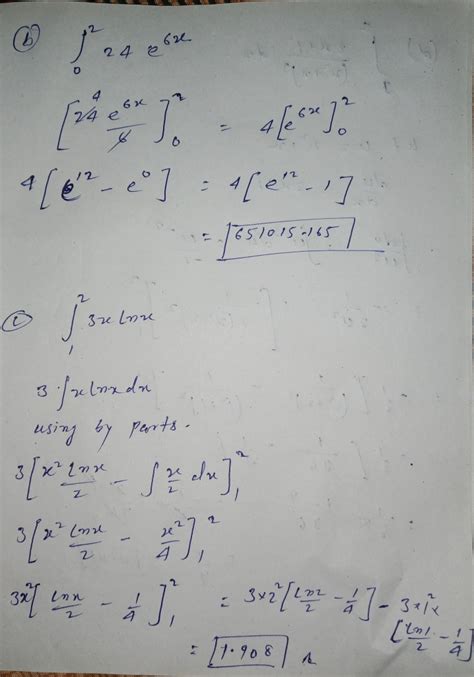 (b) ∫₀² 24 e^{6x}
[24 ⁴ e^{6x}/6]₀² = 4[e^{6x}]₀²
4[e^{12} - e^0] = 4[e^{12} - 1]
= 651015.165
(c) ∫₁² 3x lnx
3 ∫x lnx dx
using by parts.
3[x² lnx/2 - ∫ x/2 dx]₁²
3[x² lnx/2 - x²/4]₁²
3x²[lnx/2 - 1/4]₁² = 3×2²[ln2/2 - 1/4] - 3×1²×
[ln1/2 - 1/4]
= 1.908